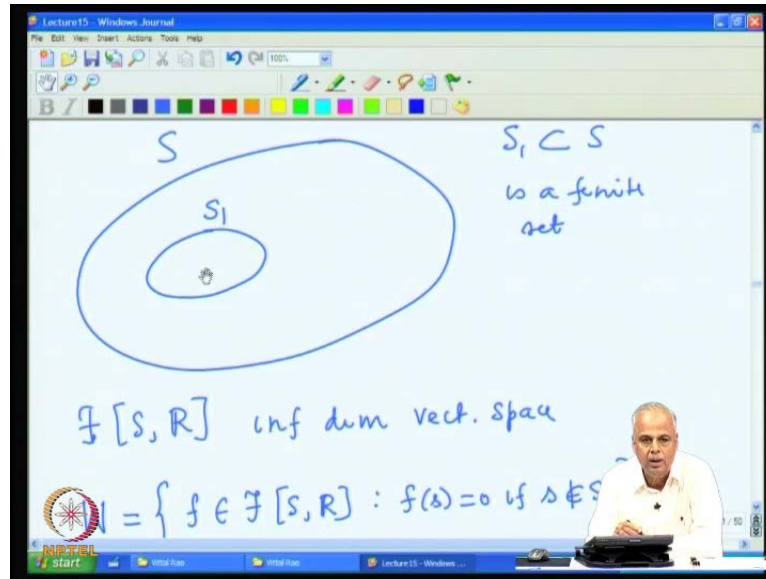 Lecture15 - Windows Journal
File Edit View Insert Actions Tools Help
100%
B I
S
S₁ ⊂ S
is a finite
set
S₁
𝓕 [S, R] inf dim vect. space
W = { f ∈ 𝓕 [S, R] : f(s)=0 if s ∉ S
/ 50
NPTEL
start
Vittal Rao
Vittal Rao
Lecture15 - Windows ...